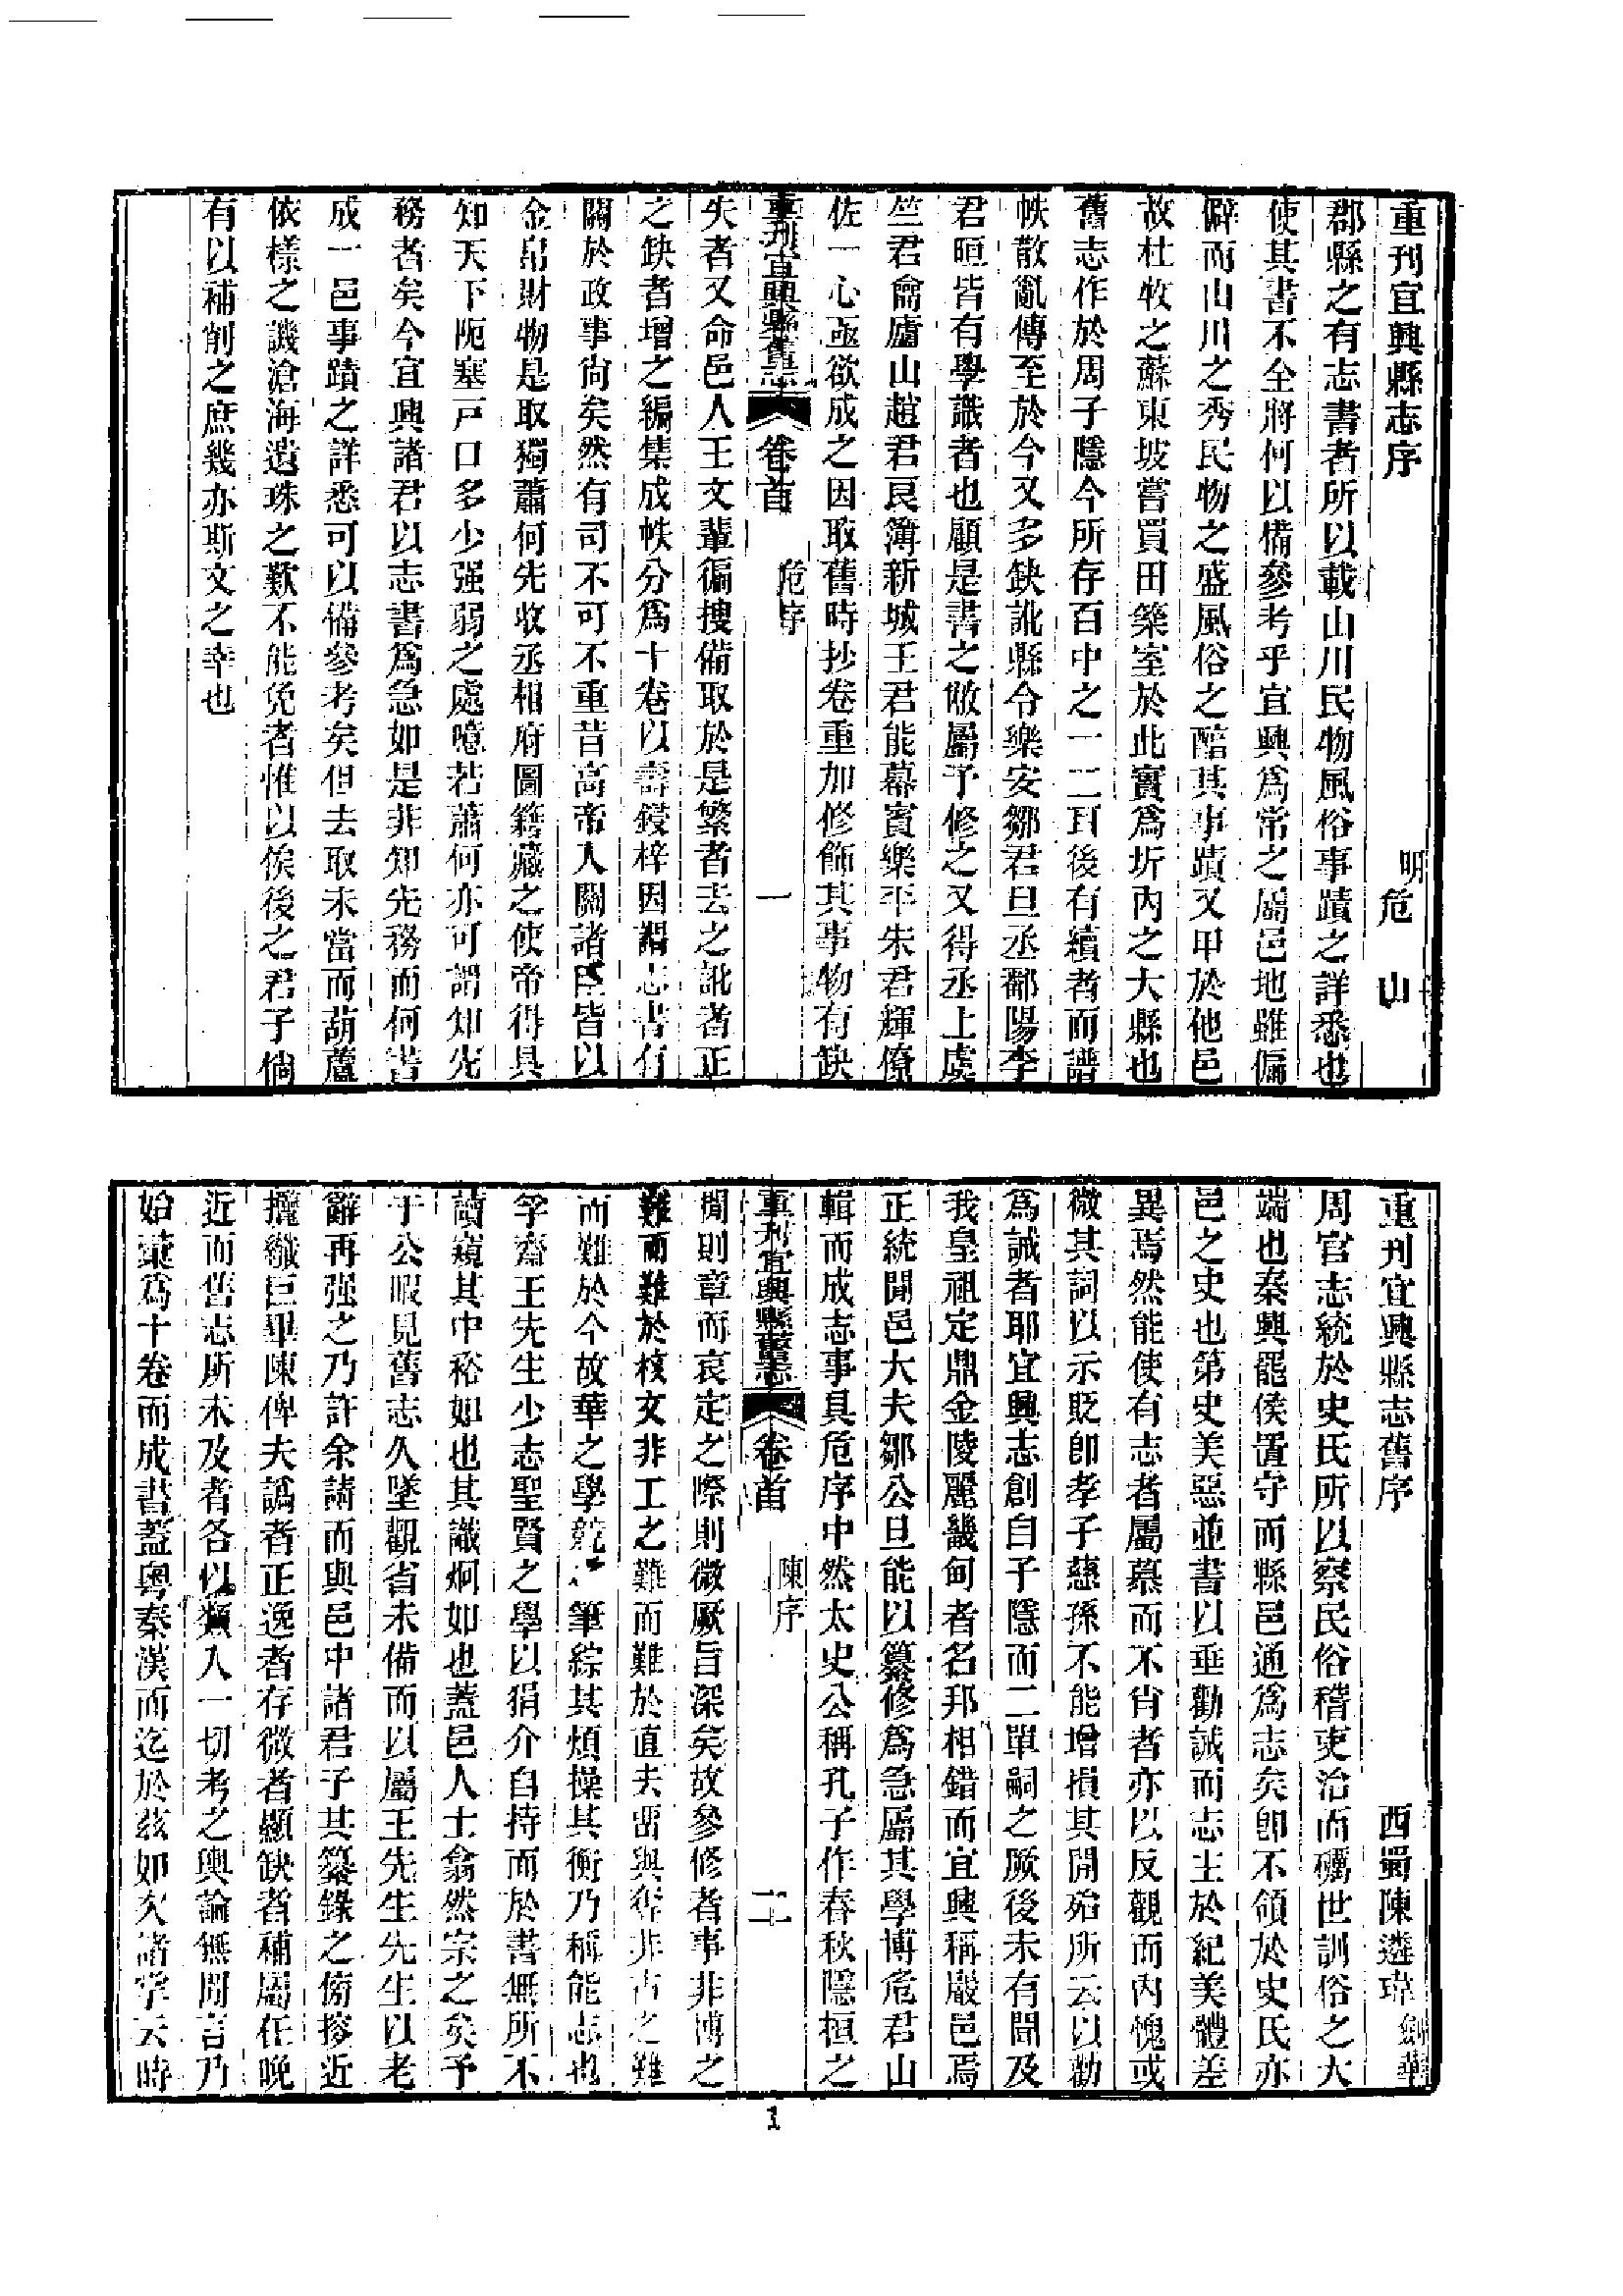 重刊宜興縣志序
明危　山
郡縣之有志書者所以載山川民物風俗事蹟之詳悉也
使其書不全將何以備參考乎宜興爲常之屬邑地雖偏
僻而山川之秀民物之盛風俗之醇其事蹟又甲於他邑
故杜牧之蘇東坡嘗買田築室於此實爲圻內之大縣也
舊志作於周子隱今所存百中之一二耳後有續者而譜
帙散亂傳至於今又多缺訛縣令樂安鄒君旦丞鄱陽李
君晅皆有學識者也顧是書之敝屬予修之又得丞上虞
竺君龠廬山趙君良簿新城王君能幕賓樂平朱君輝僚
佐一心亟欲成之因取舊時抄卷重加修飾其事物有缺
重刊宜興縣舊志　卷首　危序　一
失者又命邑人王文輩徧搜備取於是繁者去之訛者正
之缺者增之編集成帙分爲十卷以壽鋟梓因謂志書有
關於政事尙矣然有司不可不重昔高帝入關諸臣皆以
金帛財物是取獨蕭何先收丞相府圖籍藏之使帝得具
知天下阨塞戸口多少强弱之處噫若蕭何亦可謂知先
務者矣今宜興諸君以志書爲急如是非知先務而何書
成一邑事蹟之詳悉可以備參考矣但去取未當而葫蘆
依樣之譏滄海遺珠之歎不能免者惟以俟後之君子倘
有以補削之庶幾亦斯文之幸也
重刊宜興縣志舊序
西蜀陳遴瑋劍華
周官志統於史氏所以察民俗稽吏治而礪世訓俗之大
端也秦興罷侯置守而縣邑通爲志矣卽不領於史氏亦
邑之史也第史美惡並書以垂勸誡而志主於紀美體差
異焉然能使有志者屬慕而不肖者亦以反觀而內愧或
微其詞以示貶卽孝子慈孫不能增損其閒殆所云以勸
爲誡者耶宜興志創自子隱而二單嗣之厥後未有聞及
我皇祖定鼎金陵麗畿甸者名邦相錯而宜興稱巖邑焉
正統閒邑大夫鄒公旦能以纂修爲急屬其學博危君山
輯而成志事具危序中然太史公稱孔子作春秋隱桓之
重刊宜興縣舊志　卷首　陳序　二
閒則章而哀定之際則微厥旨深矣故參修者事非博之
難而難於核文非工之難而難於直去畱與奪非古之難
而難於今故華之學競筆綜其煩操其衡乃稱能志也
孚齋王先生少志聖賢之學以狷介自持而於書無所不
讀窺其中裕如也其識炯如也蓋邑人士翕然宗之矣予
于公暇見舊志久墜觀省未備而以屬王先生先生以老
辭再强之乃許余請而與邑中諸君子其纂錄之俯摭近
攟纖巨畢陳俾夫譌者正逸者存微者顯缺者補屬在晚
近而舊志所未及者各以類入一切考之輿論無閒言乃
始彙爲十卷而成書蓋粤秦漢而迄於茲如次諸掌云時
1